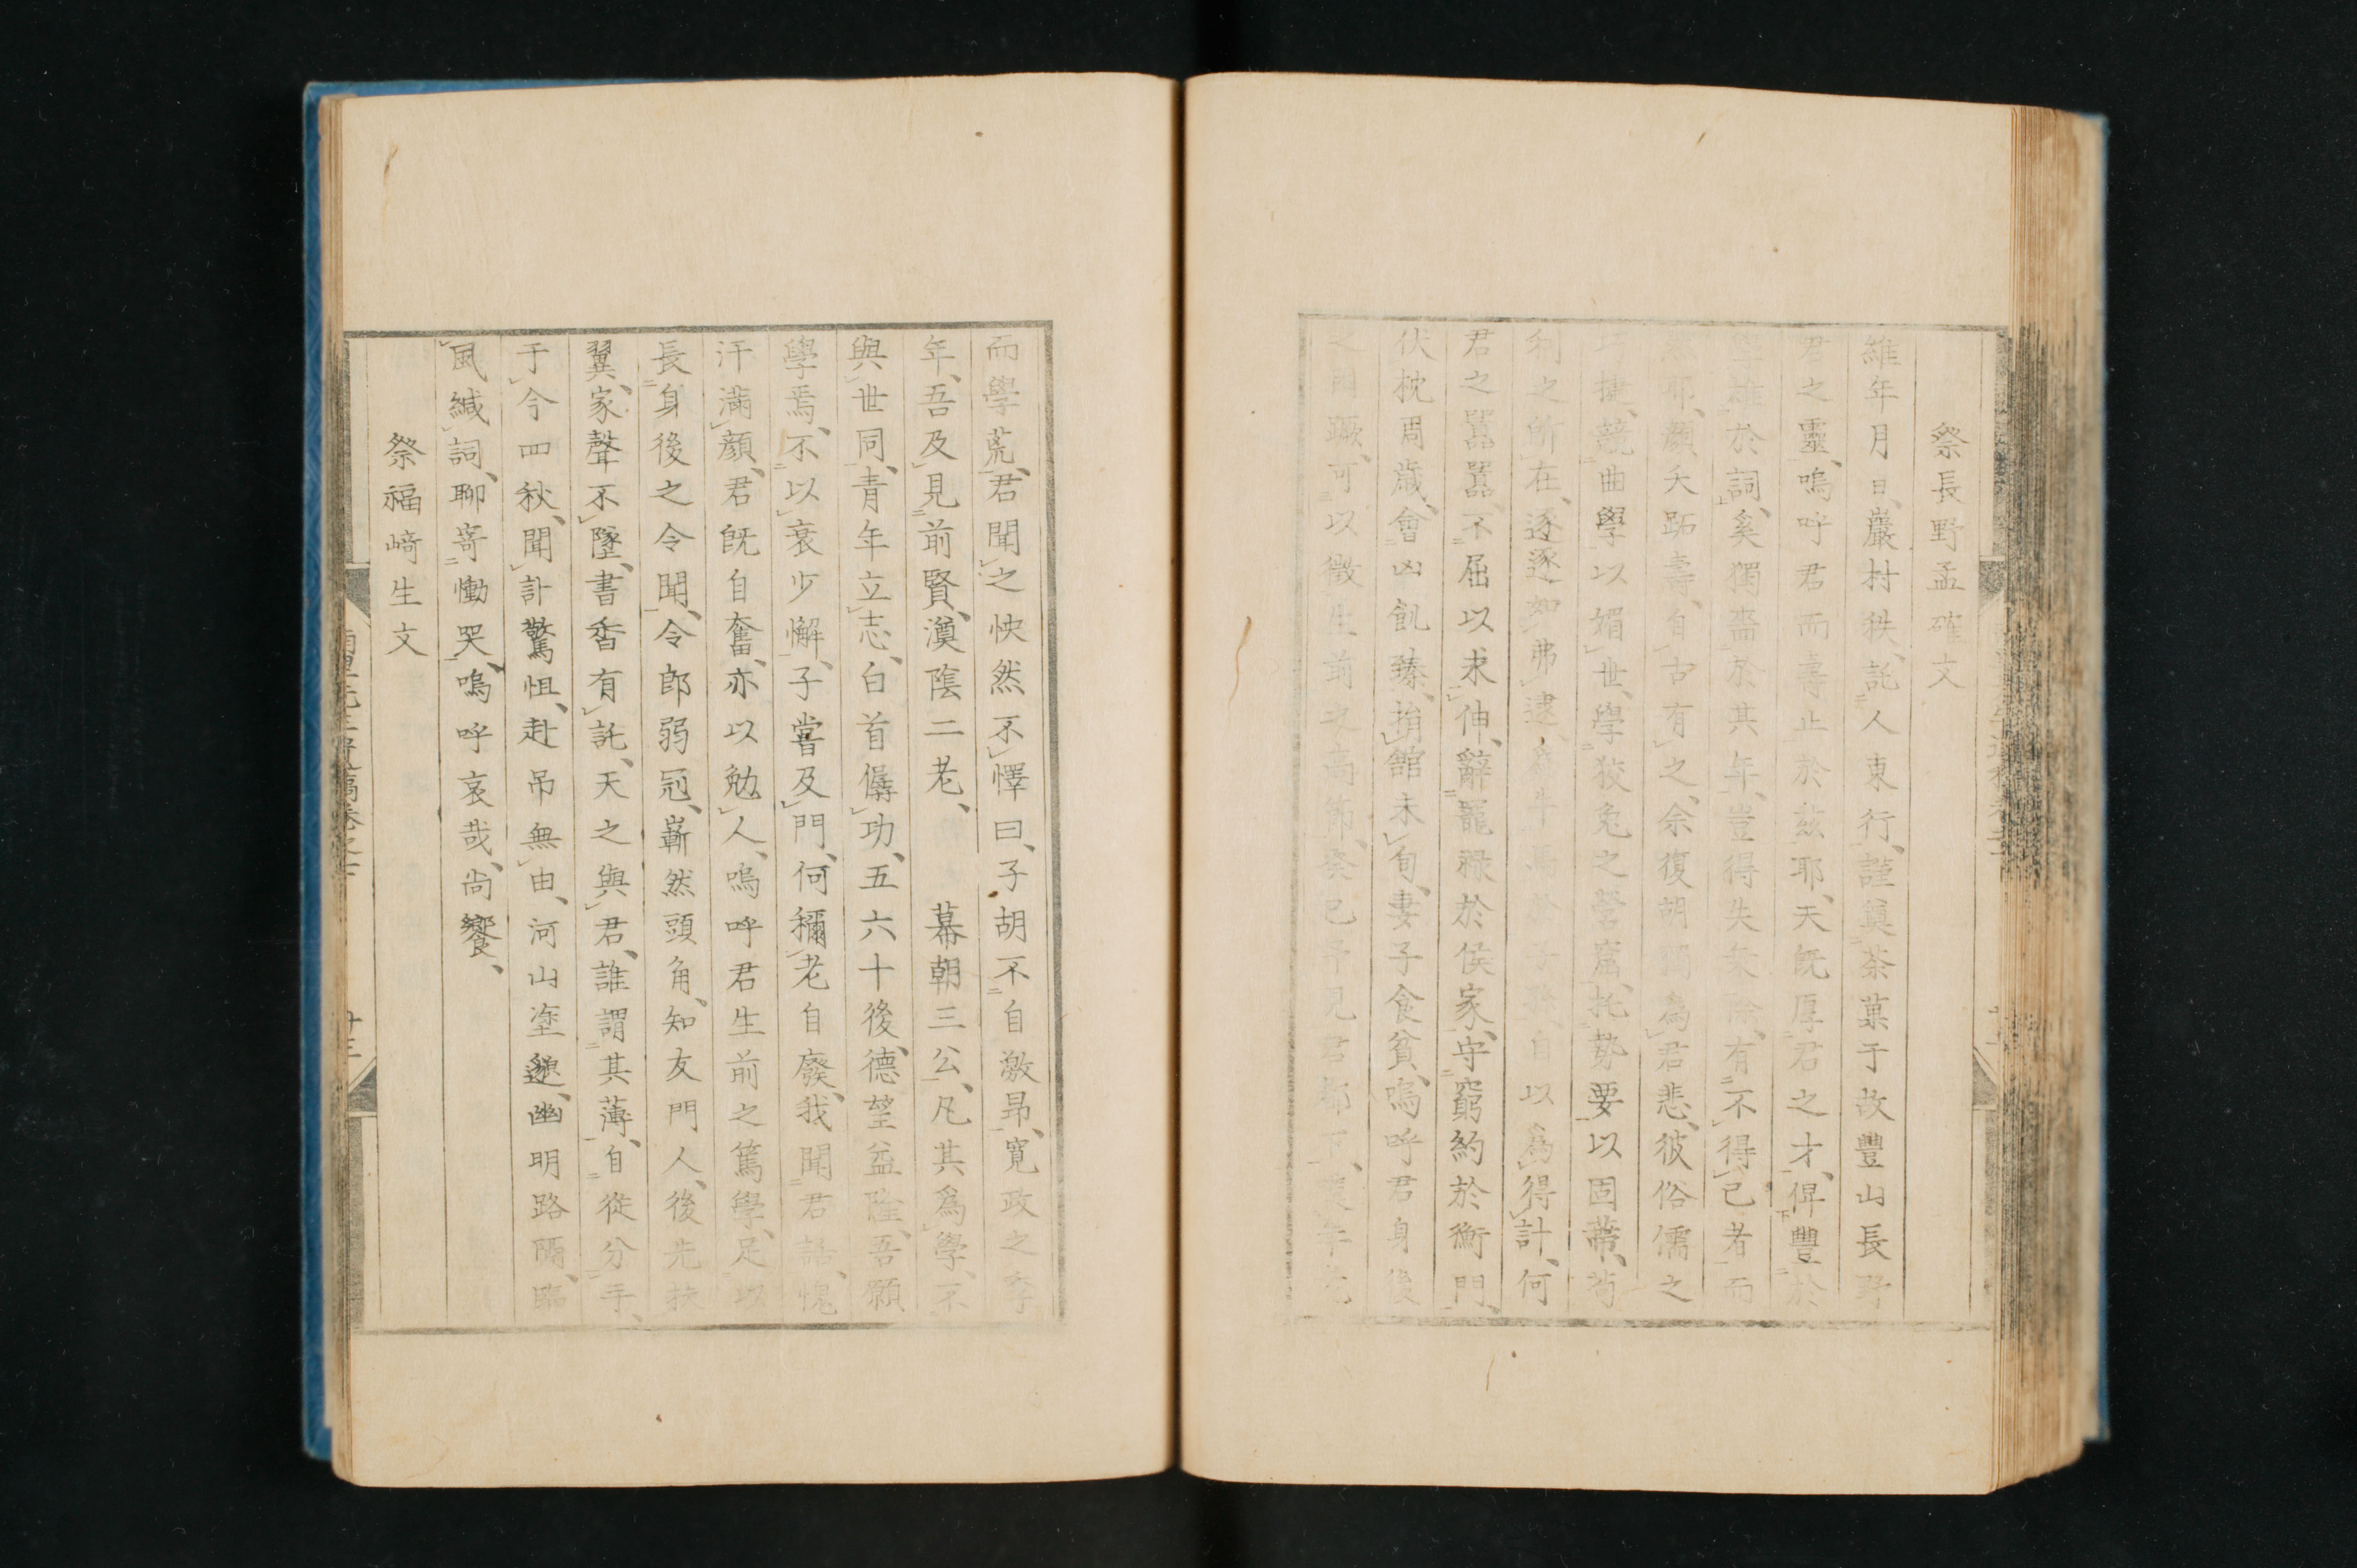 祭長野孟確文
維年月日、巖村秩、託人東行、謹奠茶菓于故豐山長野
君之靈、嗚呼君而壽止於茲耶、天既厚君之才、俾豐於
雄於詞、奚獨嗇於其年、豈得失乘除、有不得已者而
耶、顏夭跖壽、自古有之、余復胡獨為君悲、彼俗儒之
捷、競曲學以媚世、學狡兔之營窟、托勢要以固蒂、苟
利之所在、逐逐如弗逮、為牛馬於子孫、自以為得計、何
君之囂囂、不屈以求伸、辭寵祿於侯家、守窮約於衡門、
伏枕周歲、會凶飢臻、捐館未旬、妻子食貧、嗚呼君身後
之蹶、可以徵生前之高節、癸巳予見君都下、年老
而學荒、君聞之怏然不懌曰、子胡不自激昂、寬政之季
年、吾及見前賢、漢陰二老、幕朝三公、凡其為學、不
與世同、青年立志、白首僝功、五六十後、德望益隆、吾願
學焉、不以衰少懈、子嘗及門、何稱老自廢、我聞君話、愧
汗滿顏、君既自奮、亦以勉人、嗚呼君生前之篤學、足以
長身後之令聞、令郎弱冠、嶄然頭角、知友門人、後先扶
翼、家聲不墜、書香有託、天之與君、誰謂其薄、自從分手、
于今四秋、聞訃驚怛、赴吊無由、河山塗邈、幽明路隔、臨
風緘詞、聊寄慟哭、嗚呼哀哉、尚饗、
祭福﨑生文